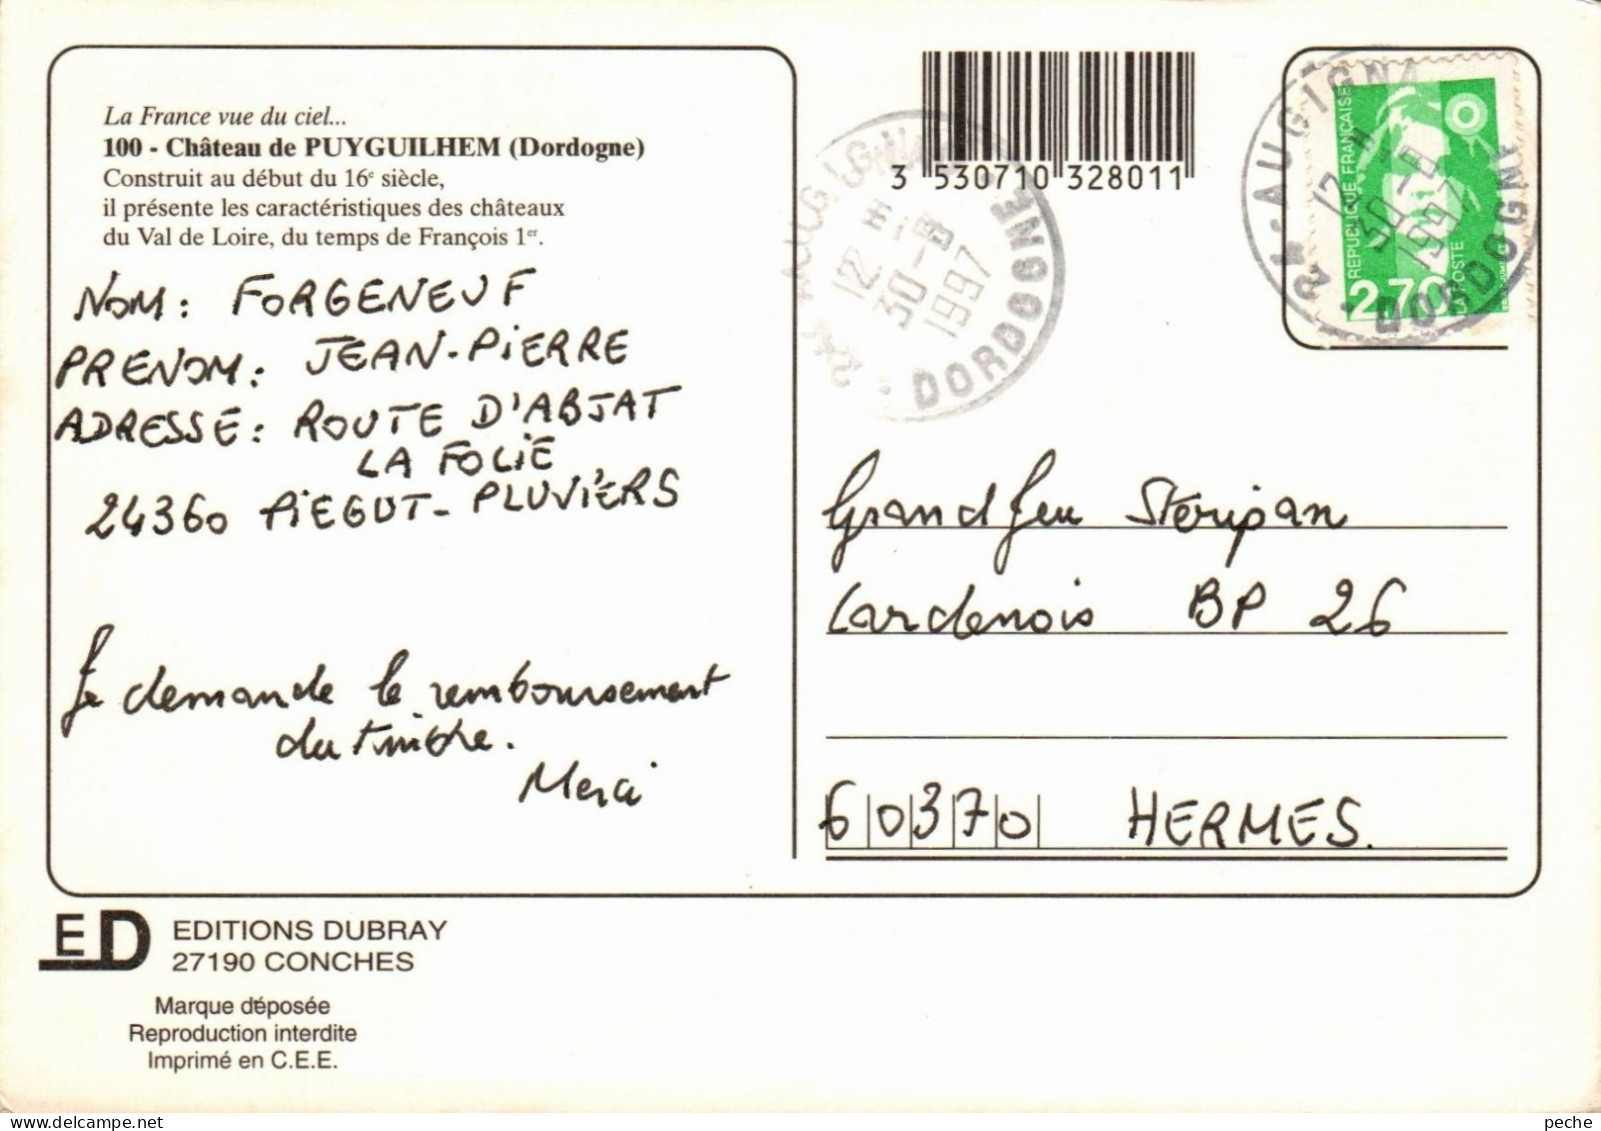 La France vue du ciel...
100 - Château de PUYGUILHEM (Dordogne)
Construit au début du 16e siècle,
il présente les caractéristiques des châteaux
du Val de Loire, du temps de François 1er.
NOM: FORGENEUF
PRENOM: JEAN-PIERRE
ADRESSE: ROUTE D'ABJAT
LA FOLIE
24360 PIEGUT-PLUVIERS
Je demande le remboursement
du timbre.
Merci
3 530710 328011
12 H
30-8
1997
DORDOGNE
24 AUGIGNA
12 H
30-8
1997
DORDOGNE
REPUBLIQUE FRANÇAISE
2,70
LA POSTE
Grand Jeu Steripan
Cardenois BP 26
60370 HERMES.
ED
EDITIONS DUBRAY
27190 CONCHES
Marque déposée
Reproduction interdite
Imprimé en C.E.E.
peche